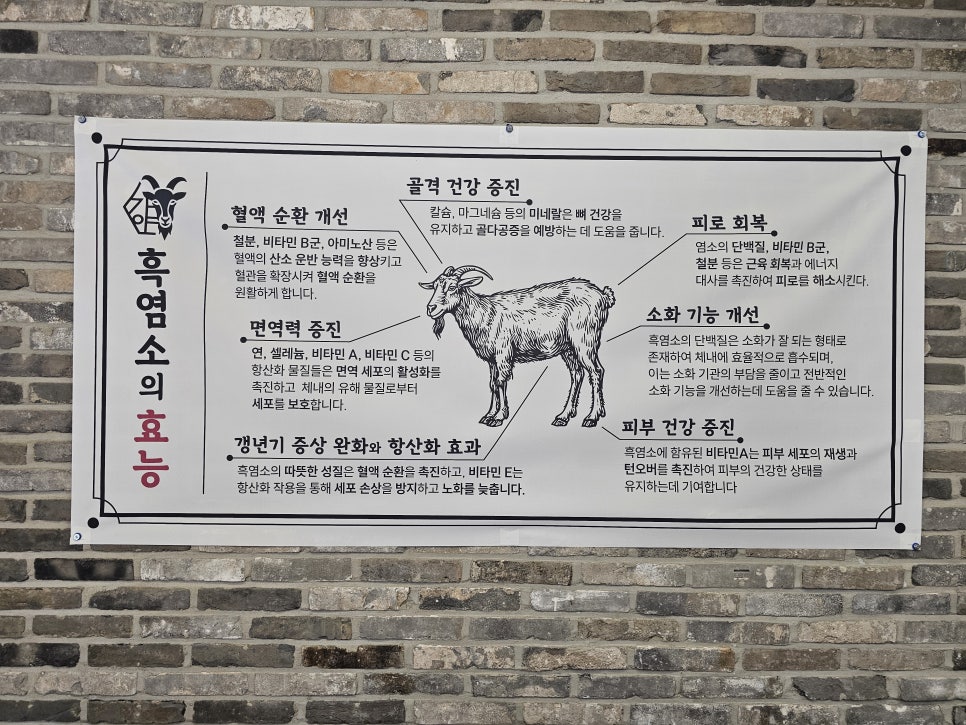 흑염소의 효능
골격 건강 증진
칼슘, 마그네슘 등의 미네랄은 뼈 건강을
유지하고 골다공증을 예방하는 데 도움을 줍니다.
혈액 순환 개선
철분, 비타민 B군, 아미노산 등은
혈액의 산소 운반 능력을 향상키고
혈관을 확장시켜 혈액 순환을
원활하게 합니다.
면역력 증진
연, 셀레늄, 비타민 A, 비타민 C 등의
항산화 물질들은 면역 세포의 활성화를
촉진하고 체내의 유해 물질로부터
세포를 보호합니다.
갱년기 증상 완화와 항산화 효과
흑염소의 따뜻한 성질은 혈액 순환을 촉진하고, 비타민 E는
항산화 작용을 통해 세포 손상을 방지하고 노화를 늦춥니다.
피로 회복
염소의 단백질, 비타민 B군,
철분 등은 근육 회복과 에너지
대사를 촉진하여 피로를 해소시킨다.
소화 기능 개선
흑염소의 단백질은 소화가 잘 되는 형태로
존재하여 체내에 효율적으로 흡수되며,
이는 소화 기관의 부담을 줄이고 전반적인
소화 기능을 개선하는데 도움을 줄 수 있습니다.
피부 건강 증진
흑염소에 함유된 비타민A는 피부 세포의 재생과
턴오버를 촉진하여 피부의 건강한 상태를
유지하는데 기여합니다